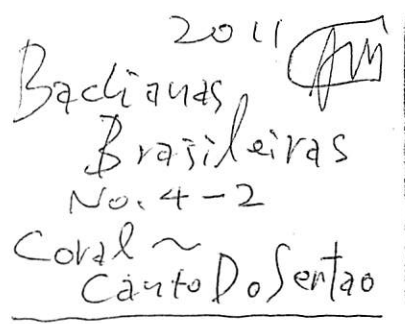 2011
Bachianas
Brasileiras
No. 4-2
Coral ~
Canto Do Sertao